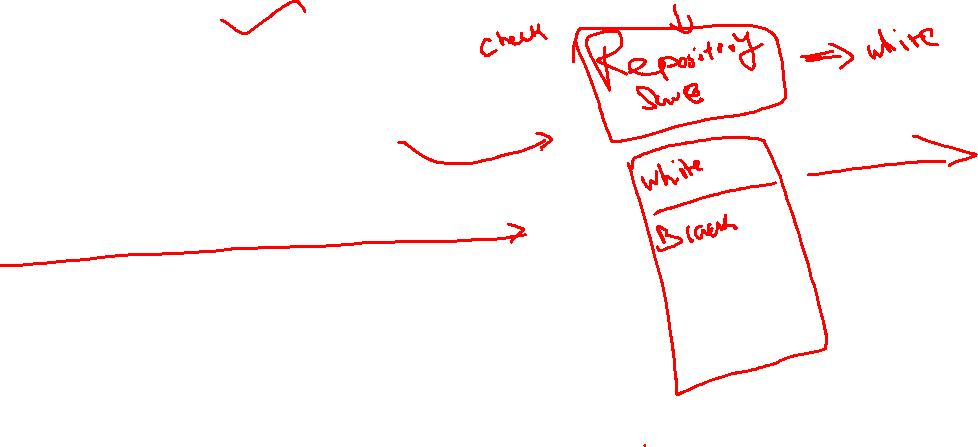 check
Repository
Save
white
white
Black